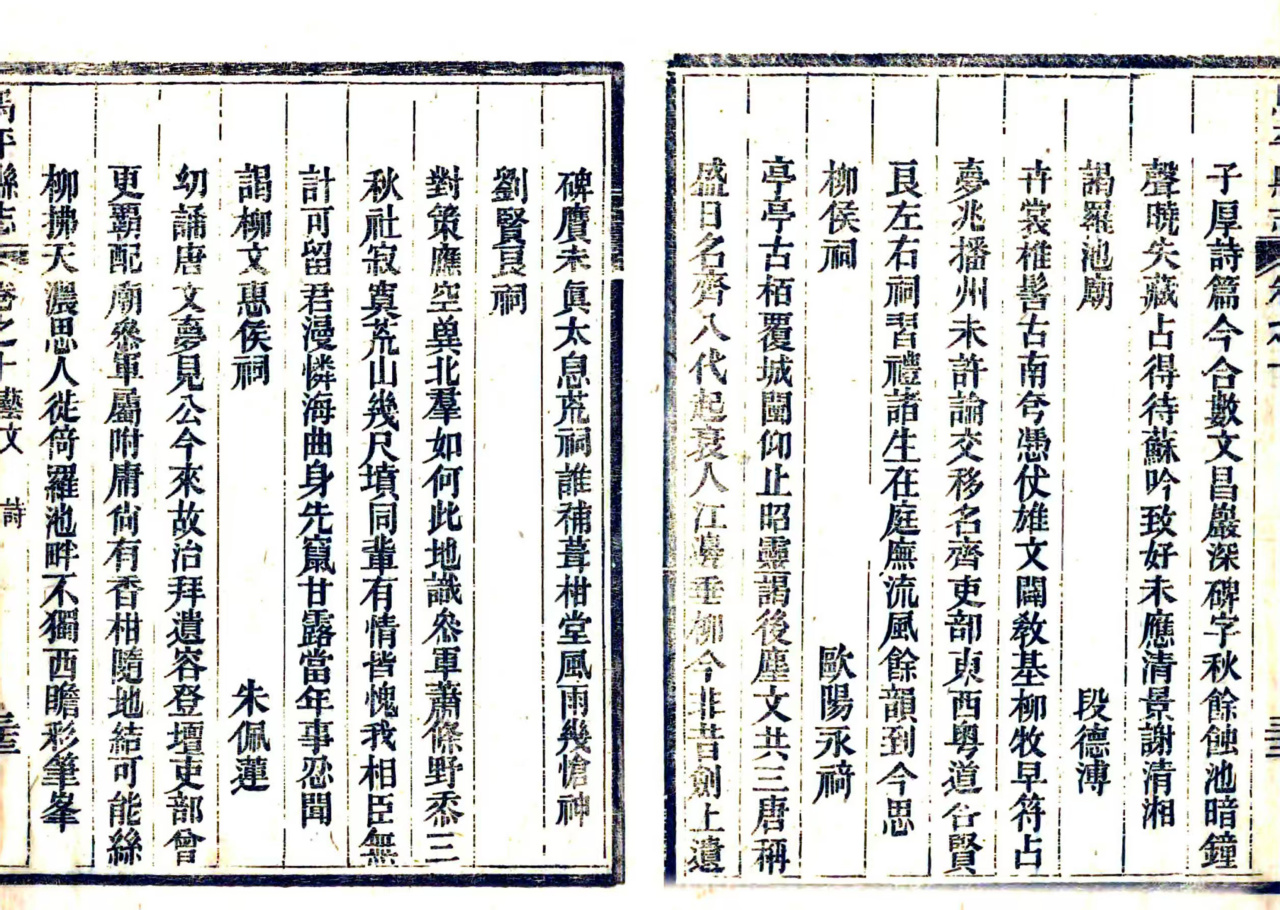 子厚詩篇今合數文昌巖深碑字秋餘蝕池暗鐘
聲曉失藏占得待蘇吟致好未應清景謝清湘
謁羅池廟 段德溥
卉裳椎髻古南兮憑仗雄文闢教基柳牧早符占
夢兆播州未許論交移名齊吏部東西粵道合賢
良左右祠習禮諸生在庭廡流風餘韻到今思
柳侯祠 歐陽永𥙷
亭亭古栢覆城闉仰止昭靈謁後塵文共三唐稱
盛日名齊八代起衰人江壖垂柳今非昔劍上遺
碑贋未眞太息荒祠誰補葺柑堂風雨幾愴神
劉賢良祠
對策應空兾北羣如何此地識叅軍蕭條野黍三
秋社寂寞荒山幾尺墳同輩有情皆愧我相臣無
計可留君漫憐海曲身先竄甘露當年事忍聞
謁柳文惠侯祠 朱佩蓮
㓜誦唐文夢見公今來故治拜遺容登壇吏部曾
更霸配廟叅軍屬附庸尙有香柑隨地結可能絲
柳拂天濃思人徙倚羅池畔不獨西瞻彩筆峯
馬平縣志 卷之十藝文 詩